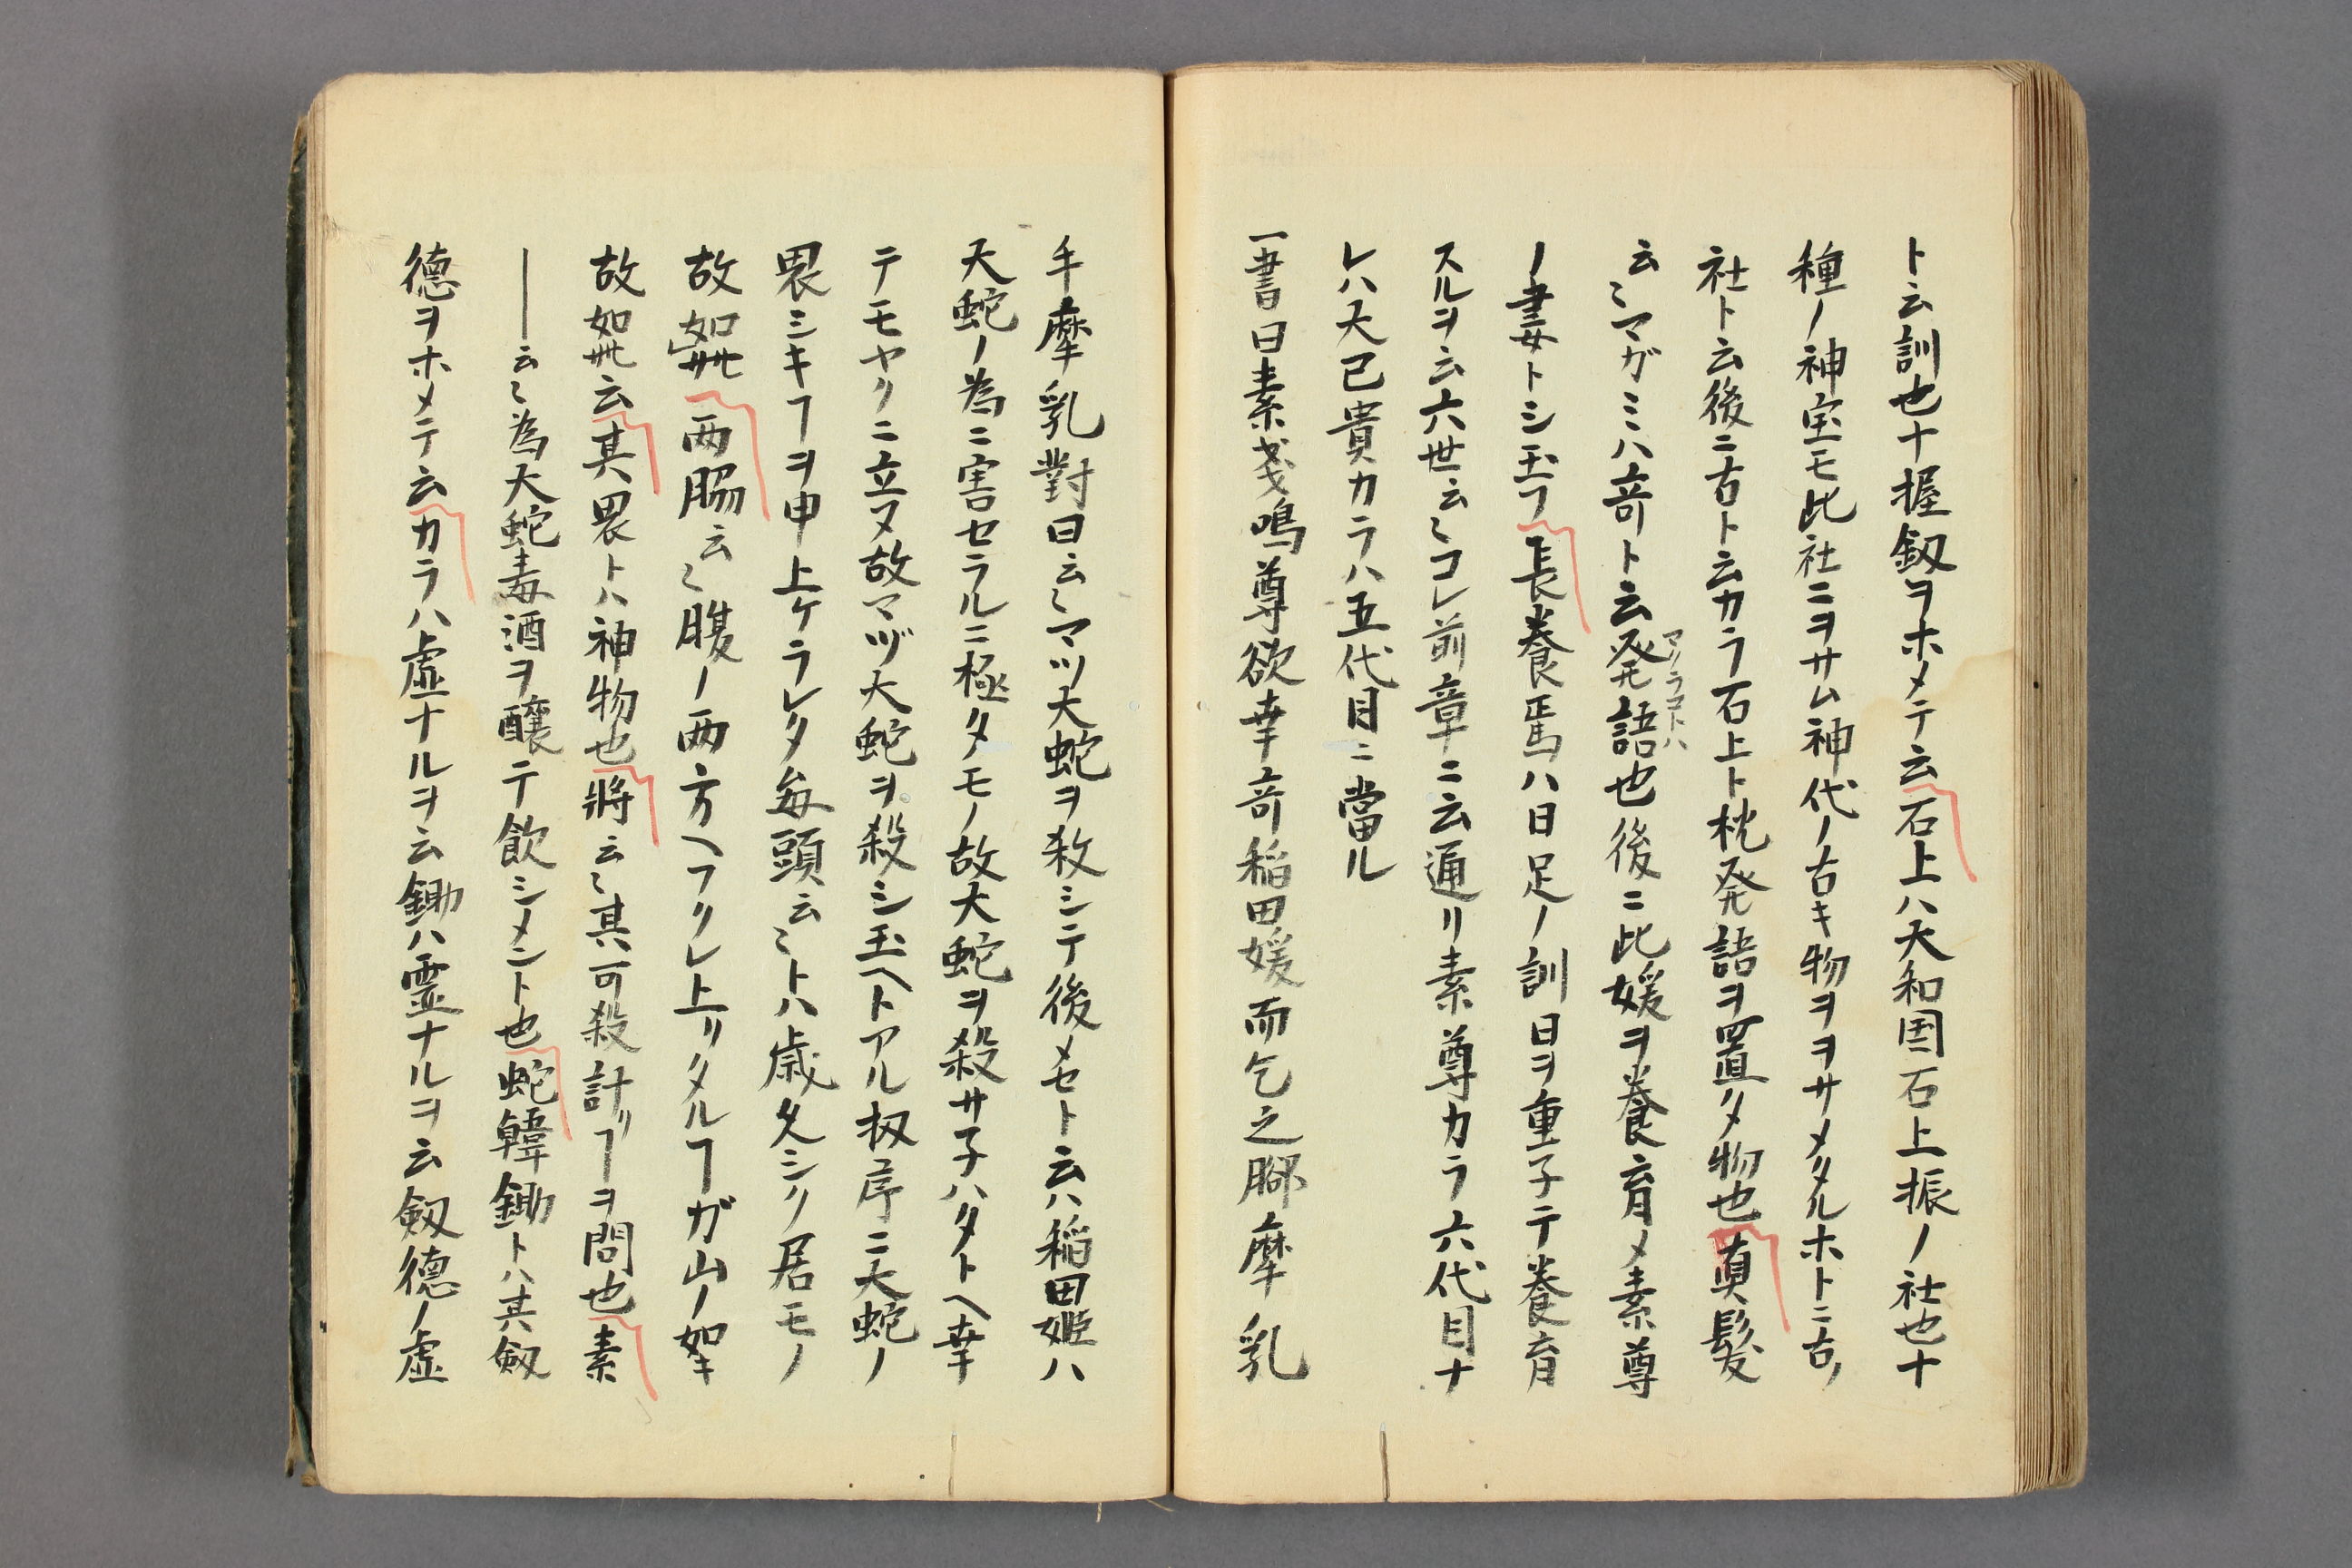 ト云訓也十握釼ヲホメテ云石上ハ大和国石上振ノ社也十
種ノ神宝モ此社ニヲサム神代ノ古キ物ヲヲサメタルホトニ古ノ
社ト云後ニ古ト云カラ石上ト枕発語ヲ置タ物也真髪
云〻マガミハ竒ト云発語也後ニ此媛ヲ養育メ素尊
マクラコトハ
ノ妻トシ玉フ長養焉ハ日足ノ訓日ヲ重子テ養育
スルヲ云六世云〻コレ前章ニ云通リ素尊カラ六代目ナ
レハ大己貴カラハ五代目ニ當ル
一書曰素戔鳴尊欲幸竒稲田媛而乞之脚摩乳
手摩乳對曰云〻マツ大蛇ヲ殺シテ後メセト云ハ稲田姫ハ
大蛇ノ為ニ害セラルニ極タモノ故大蛇ヲ殺サ子ハタトヘ幸
テモヤクニ立ヌ故マヅ大蛇ヲ殺シ玉ヘトアル扨序ニ大蛇ノ
畏シキヿヲ申上ケラレタ毎頭云〻トハ歳久シク居モノ
故如此両脇云〻腹ノ両方ヘフクレ上リタルヿガ山ノ如キ
故如此云其畏トハ神物也將云〻其可殺計リヿヲ問也素
――云〻為大蛇毒酒ヲ醸テ飲シメント也蛇韓鋤トハ其釼
德ヲホメテ云カラハ虚ナルヲ云鋤ハ霊ナルヲ云釼德ノ虚